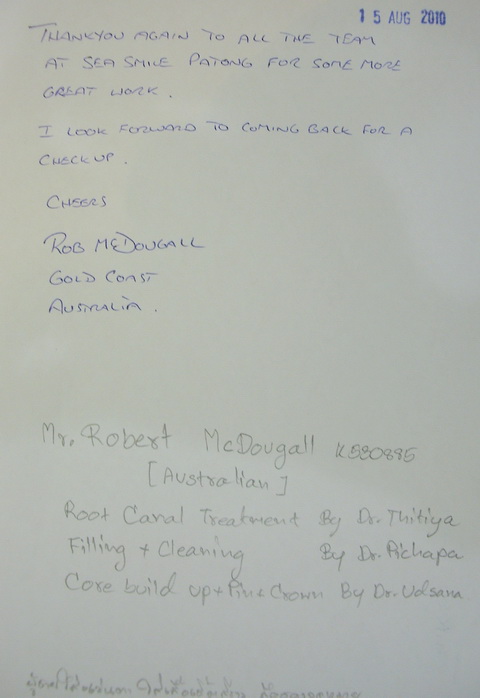 15 AUG 2010
THANKYOU AGAIN TO ALL THE TEAM
AT SEA SMILE PATONG FOR SOME MORE
GREAT WORK.
I LOOK FORWARD TO COMING BACK FOR A
CHECKUP.
CHEERS
ROB MCDOUGALL
GOLD COAST
AUSTRALIA.
Mr. Robert McDougall K580885
[Australian]
Root Canal Treatment By Dr. Thitiya
Filling + Cleaning By Dr. Pichapa
Core build up + Pin + Crown By Dr. Udsana